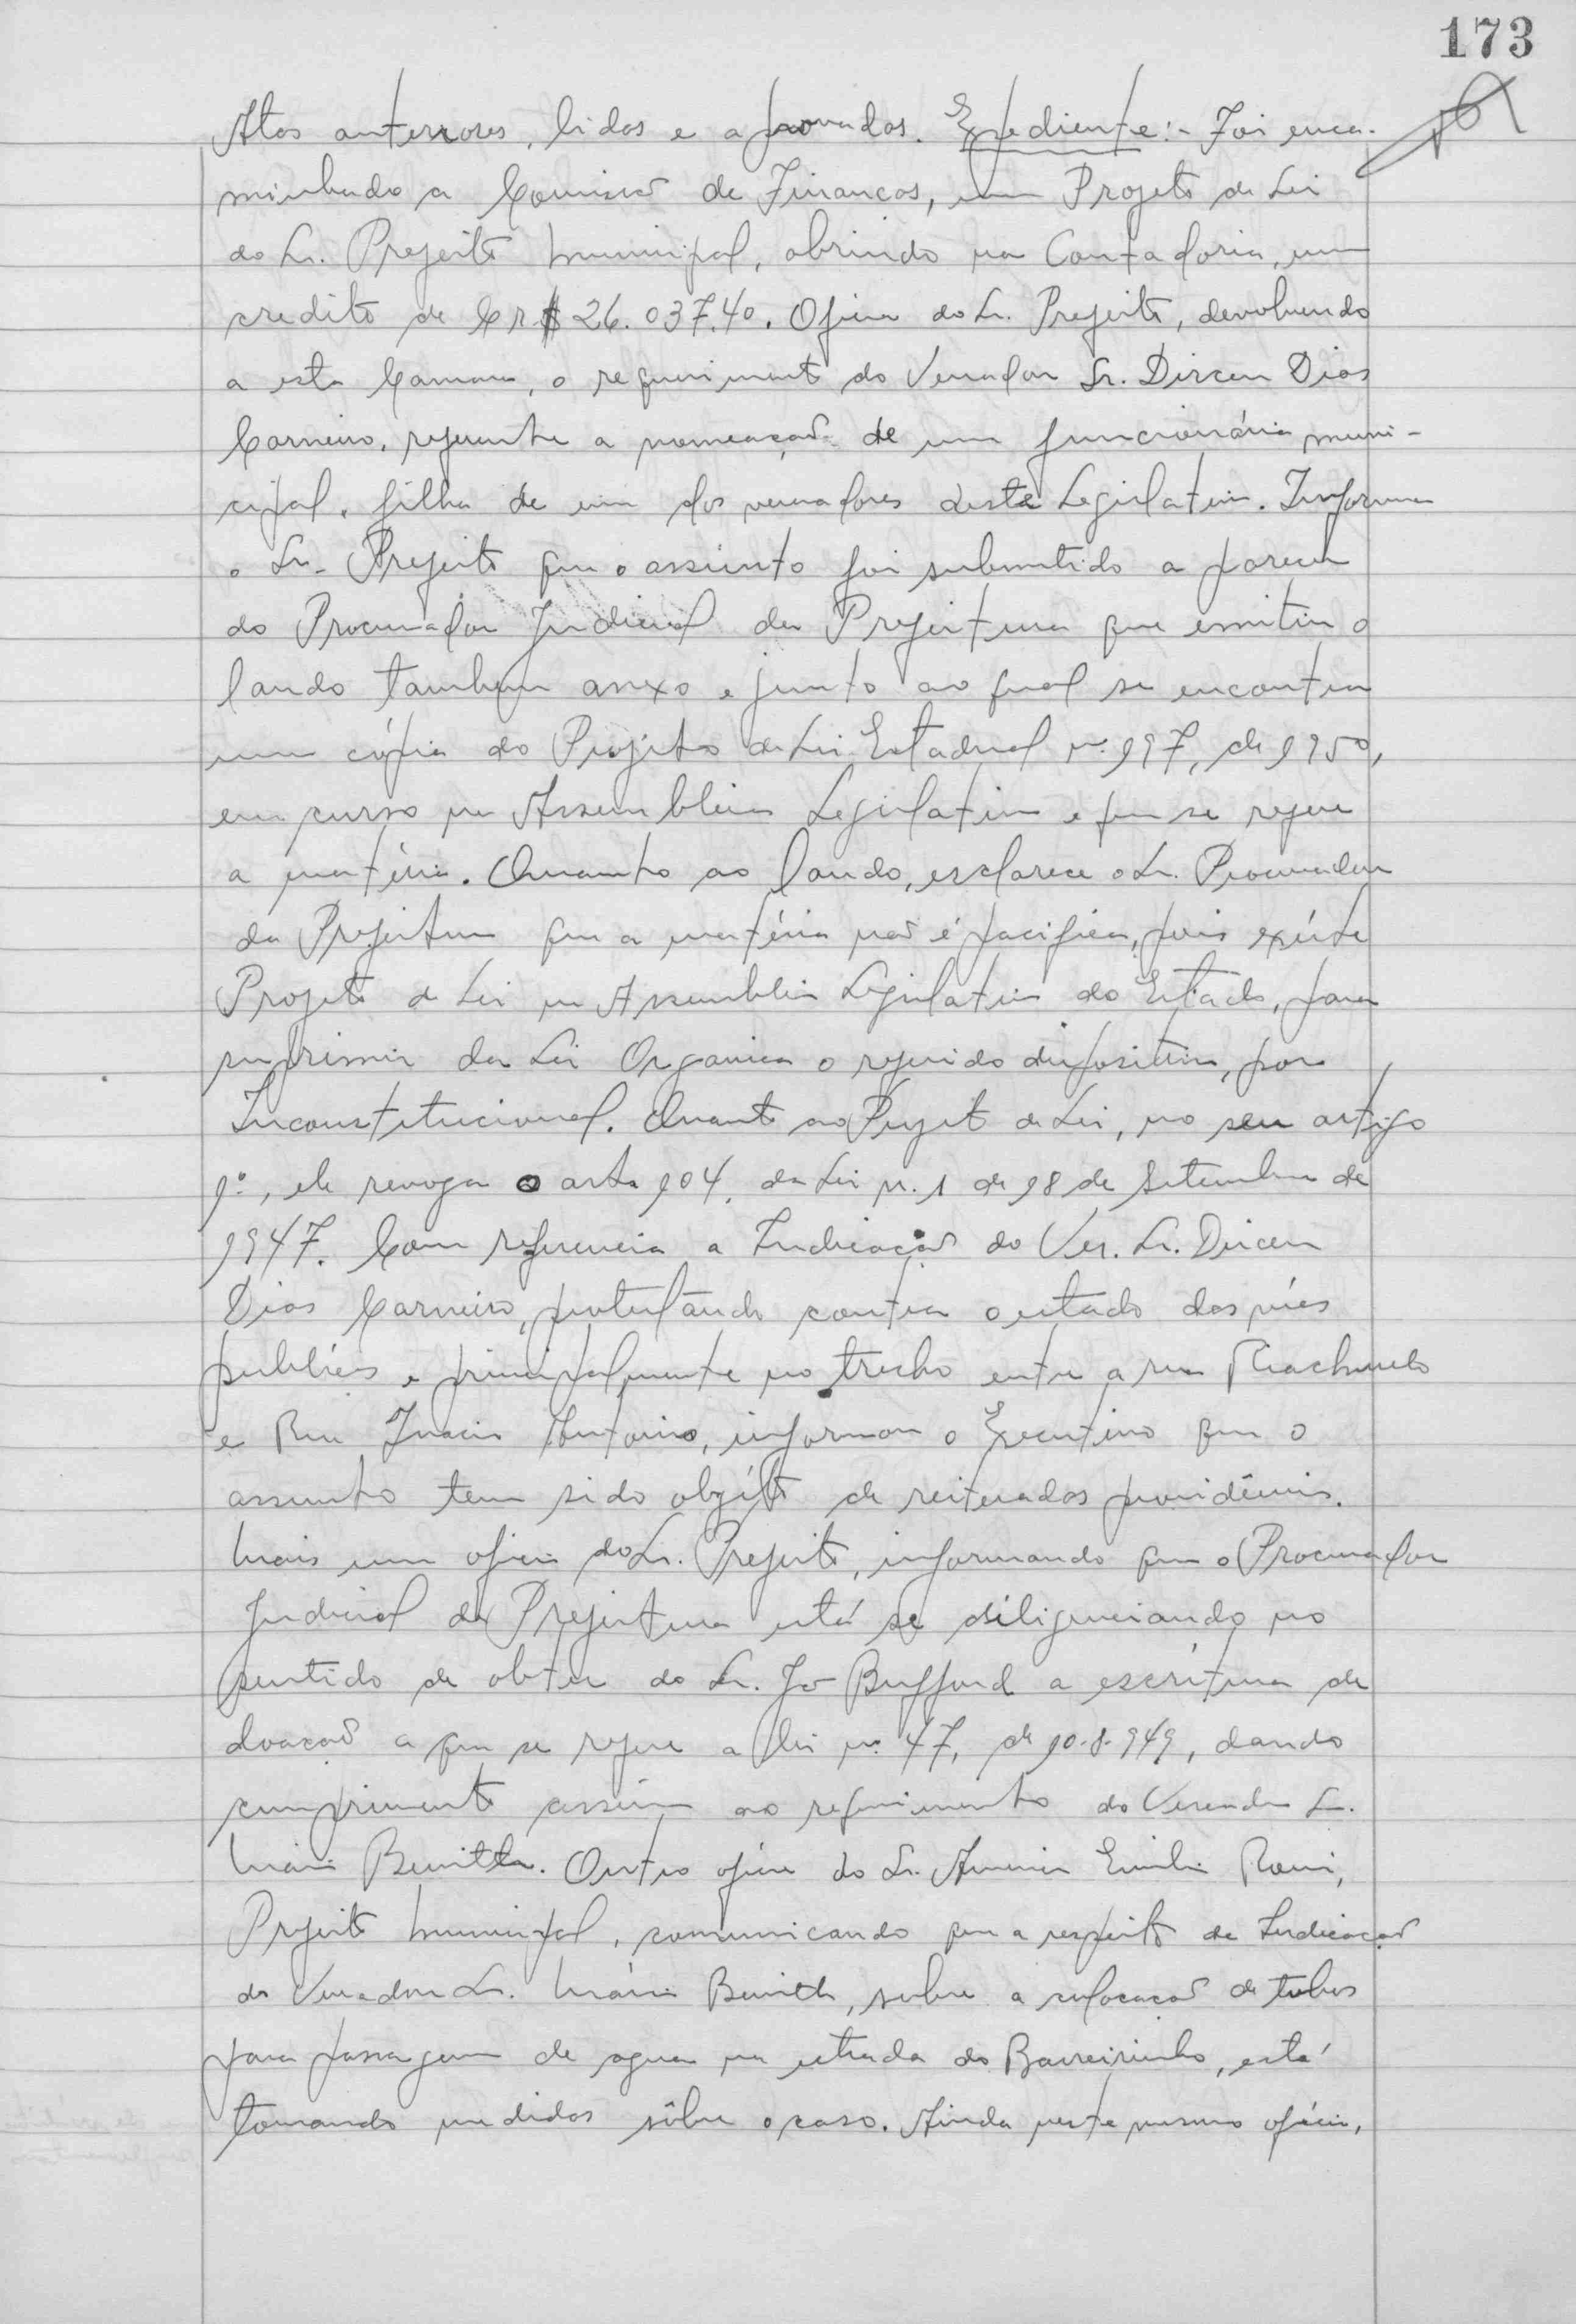 173
Atas anteriores, lidas e aprovadas. Expediente:- Foi enca-
minhado a Comissão de Finanças, um Projeto de Lei
do Sr. Prefeito Municipal, abrindo na Contadoria, um
credito de Cr$ 26.037,40. Oficio do Sr. Prefeito, devolvendo
a esta Camara, o requerimento do Vereador Sr. Dirceu Dias
Carneiro, referente a nomeação de um funcionária muni-
cipal, filha de um dos vereadores deste Legislativo. Informa
o Sr. Prefeito que o assunto foi submetido a parecer
do Procurador Judicial da Prefeitura que emitiu o
laudo tambem anexo e junto ao qual se encontra
uma cópia do Projeto de Lei Estadual nº 197, de 1950,
em curso na Assembléia Legislativa e que se refere
a matéria. Quanto ao laudo, esclarece o Sr. Procurador
da Prefeitura que a matéria não é pacifica, pois existe
Projeto de Lei na Assembléia Legislativa do Estado, para
suprimir da Lei Organica o referido dispositivo, por
Inconstitucional. Quanto ao Projeto de Lei, no seu artigo
1º, ele revoga o art. 104, da Lei n. 1 de 18 de Setembro de
1947. Com referencia a Indicação do Ver. Sr. Dirceu
Dias Carneiro, protestando contra o estado das vias
publicas e principalmente no trecho entre a rua Riachuelo
e Rua Inacio Antonio, informou o Executivo que o
assunto tem sido objéto de reiteradas providências.
Mais um oficio do Sr. Prefeito, informando que o Procurador
Judicial da Prefeitura está se diligenciando no
sentido de obter do Sr. Jo Bufford a escritura de
doação a que se refere a lei nº 47, de 10-8-949, dando
cumprimento assim ao requerimento do Vereador Sr.
Mário Benitth. Outro oficio do Sr. Emilio
Prefeito Municipal, comunicando que a respeito da Indicação
do Vereador Sr. Mário Benitth, sobre a colocação de tubos
para passagem de agua na estrada do Barreirinho, está
tomando medidas sôbre o caso. Ainda neste mesmo ofício,